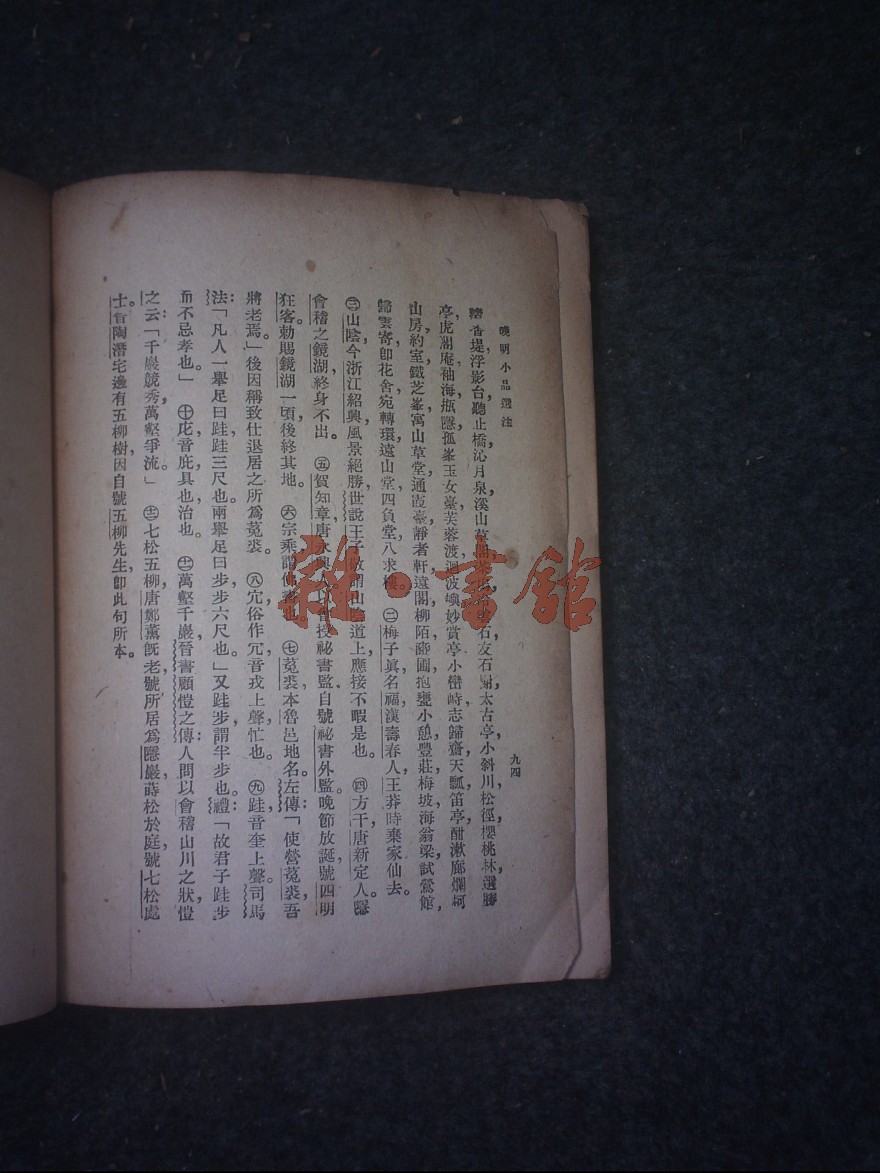 晚明小品選注
九四
香堤，浮影台，聽止橋，沁月泉，溪山草閣，石友石榭，太古亭，小斜川，松徑，櫻桃林，選勝
亭，虎閣庵，袖海，瓶隱，孤峯玉女臺，芙蓉渡，迴波嶼，妙賞亭，小巒峙，志歸齋，天瓢，笛亭，酣漱廊，爛柯
山房，約室，鐵芝峯，寓山草堂，通霞臺，靜者軒，遠閣，柳陌，豳圃，抱甕小憩，豐莊，梅坡，海翁梁，試鶯館，
歸雲寄，即花舍，宛轉環，遠山堂，四負堂，八求樓。　㊁梅子眞名福，漢壽春人，王莽時棄家仙去。
㊂山陰，今浙江紹興，風景絕勝，世說王子敬謂山陰道上，應接不暇是也。　㊃方干唐新定人，隱
會稽之鏡湖，終身不出。　㊄賀知章唐永興人，授祕書監，自號祕書外監。晚節放誕，號四明
狂客，勅賜鏡湖一頃，後終其地。　㊅宗乘謂佛書也。　㊆菟裘本魯邑地名。左傳：「使營菟裘，吾
將老焉。」後因稱致仕退居之所爲菟裘。　㊇宂俗作冗，音戎上聲，忙也。　㊈跬音奎上聲，司馬
法：「凡人一舉足曰跬，跬三尺也。兩舉足曰步，步六尺也。」又跬步，謂半步也。禮：「故君子跬步
而不忘孝也。」　㊉庀音庇，具也，治也。　萬壑千巖，晉書顧愷之傳：人問以會稽山川之狀，愷
之云：「千巖競秀，萬壑爭流。」　七松五柳，唐鄭薰旣老，號所居爲隱巖，蒔松於庭，號七松處
士。晉陶潛宅邊有五柳樹，因自號五柳先生，卽此句所本。
雜·書館